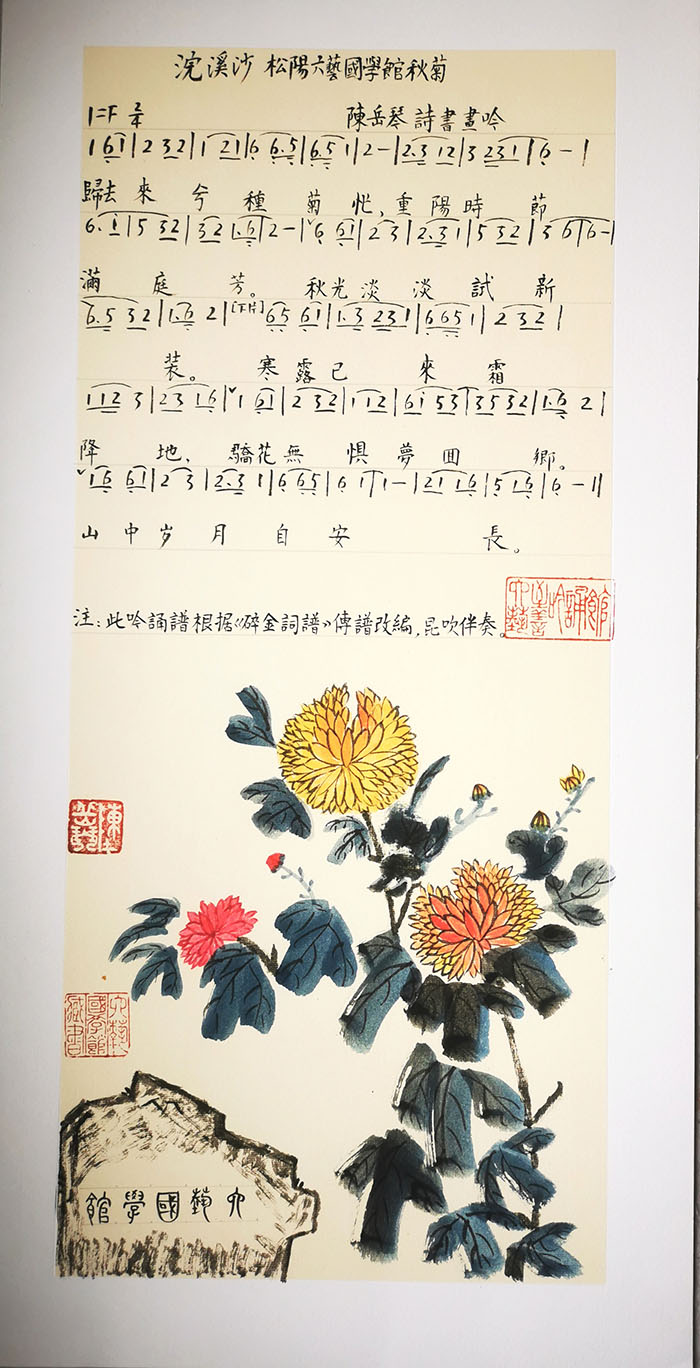 浣溪沙 松陽六藝國學館秋菊
1=F 2/4 陳岳琴詩書畫吟
1 61|2 32|1 21|6 6.5|6.5 1|2-|2.3 12|3 231|6-|
歸去來兮種菊忙,重陽時節
6. 1|5 32|32 1.6|2-|6 61|2 3|2.3 1|5 32|3 6|6-|
滿庭芳。秋光淡淡試新
6.5 32|1.6 2|[下片]65 61|1.3 231|665 1|2 32|
裝。寒露已來霜
112 3|23 16|1 61|2 32|1 12|61 53|35 32|1.6 2|
降地,驕花無惧夢囬鄉。
16 61|2 3|2.3 1|6 65|6 1|1-|21 16|5 16|6-||
山中岁月自安長。
注:此吟誦譜根据《碎金詞譜》傳譜改編,昆吹伴奏。
六藝國學館